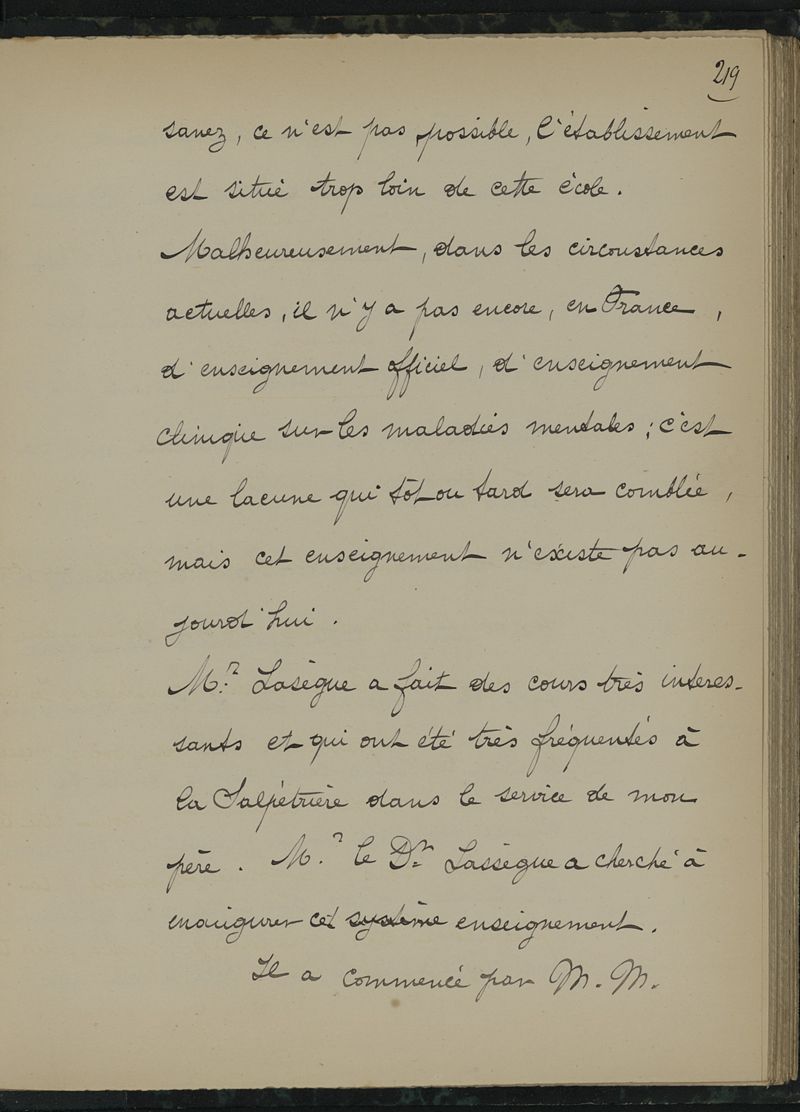 219
sanez, ce n'est pas possible, l'établissement
est situé trop loin de cette école.
Malheureusement, dans les circonstances
actuelles, il n'y a pas encore, en France,
d'enseignement officiel, d'enseignement
clinique sur les maladies mentales ; c'est
une lacune qui tôt ou tard sera comblée,
mais cet enseignement n'existe pas au-
jourd'hui.
M.r Lasègue a fait des cours très interes-
sants et qui ont été très fréquentés à
la Salpêtrière dans le service de mon
père. M.r le Dr Lassègue a cherché à
inaugurer cet système enseignement.
Il a commencé par M. M.